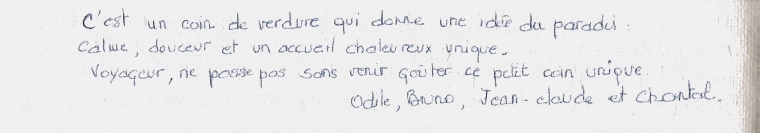 C'est un coin de verdure qui donne une idée du paradis :
Calme, douceur et un accueil chaleureux unique.
Voyageur, ne passe pas sans venir goûter ce petit coin unique.
Odile, Bruno, Jean-claude et Chantal.